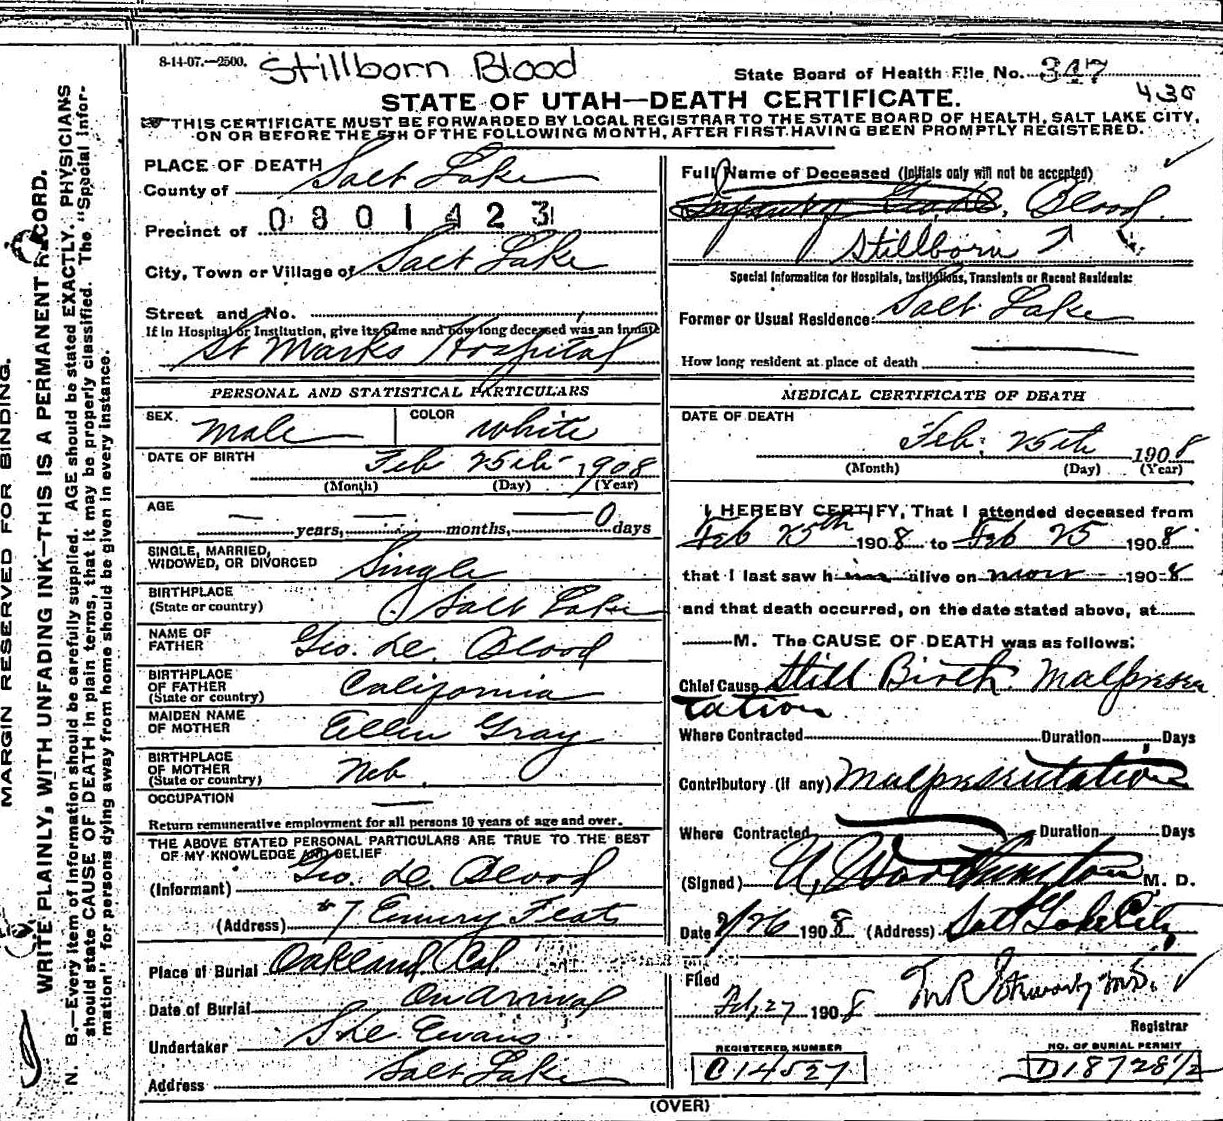 8-14-07.—2500.
Stillborn Blood
State Board of Health File No. 347
430
STATE OF UTAH—DEATH CERTIFICATE.
THIS CERTIFICATE MUST BE FORWARDED BY LOCAL REGISTRAR TO THE STATE BOARD OF HEALTH, SALT LAKE CITY,
ON OR BEFORE THE 5TH OF THE FOLLOWING MONTH, AFTER FIRST HAVING BEEN PROMPTLY REGISTERED.
PLACE OF DEATH
County of Salt Lake
Precinct of 0801423
City, Town or Village of Salt Lake
Street and No.
If in Hospital or Institution, give its name and how long deceased was an inmate
St Marks Hospital
PERSONAL AND STATISTICAL PARTICULARS
SEX Male COLOR White
DATE OF BIRTH Feb 25th 1908
(Month) (Day) (Year)
AGE
— years, — months, — 0 days
SINGLE, MARRIED,
WIDOWED, OR DIVORCED Single
BIRTHPLACE
(State or country) Salt Lake
NAME OF
FATHER Geo. W. Blood
BIRTHPLACE
OF FATHER
(State or country) California
MAIDEN NAME
OF MOTHER Ellen Gray
BIRTHPLACE
OF MOTHER
(State or country) Neb.
OCCUPATION —
Return remunerative employment for all persons 10 years of age and over.
THE ABOVE STATED PERSONAL PARTICULARS ARE TRUE TO THE BEST
OF MY KNOWLEDGE AND BELIEF
(Informant) Geo. W. Blood
(Address) #7 Emery Flats
Place of Burial Oakland Cal.
Date of Burial On Arrival
Undertaker Evans
Address Salt Lake
Full Name of Deceased (Initials only will not be accepted)
Blood
Stillborn
Special Information for Hospitals, Institutions, Transients or Recent Residents:
Former or Usual Residence: Salt Lake
How long resident at place of death
MEDICAL CERTIFICATE OF DEATH
DATE OF DEATH
Feb. 25th 1908
(Month) (Day) (Year)
I HEREBY CERTIFY, That I attended deceased from
Feb 25th 1908 to Feb 25 1908
that I last saw h alive on 1908
and that death occurred, on the date stated above, at
M. The CAUSE OF DEATH was as follows:
Chief Cause Still Birth. Malpresen
tation
Where Contracted Duration Days
Contributory (if any) Malpresentation
Where Contracted Duration Days
(Signed) Worthington M. D.
Date 2/26 1908 (Address) Salt Lake City
Filed
Feb. 27 1908
Registrar
REGISTERED NUMBER
C14527
NO. OF BURIAL PERMIT
D18728 1/2
(OVER)
MARGIN RESERVED FOR BINDING.
WRITE PLAINLY, WITH UNFADING INK—THIS IS A PERMANENT RECORD.
N. B.—Every item of information should be carefully supplied. AGE should be stated EXACTLY. PHYSICIANS
should state CAUSE OF DEATH in plain terms, that it may be properly classified. The "Special Infor-
mation" for persons dying away from home should be given in every instance.